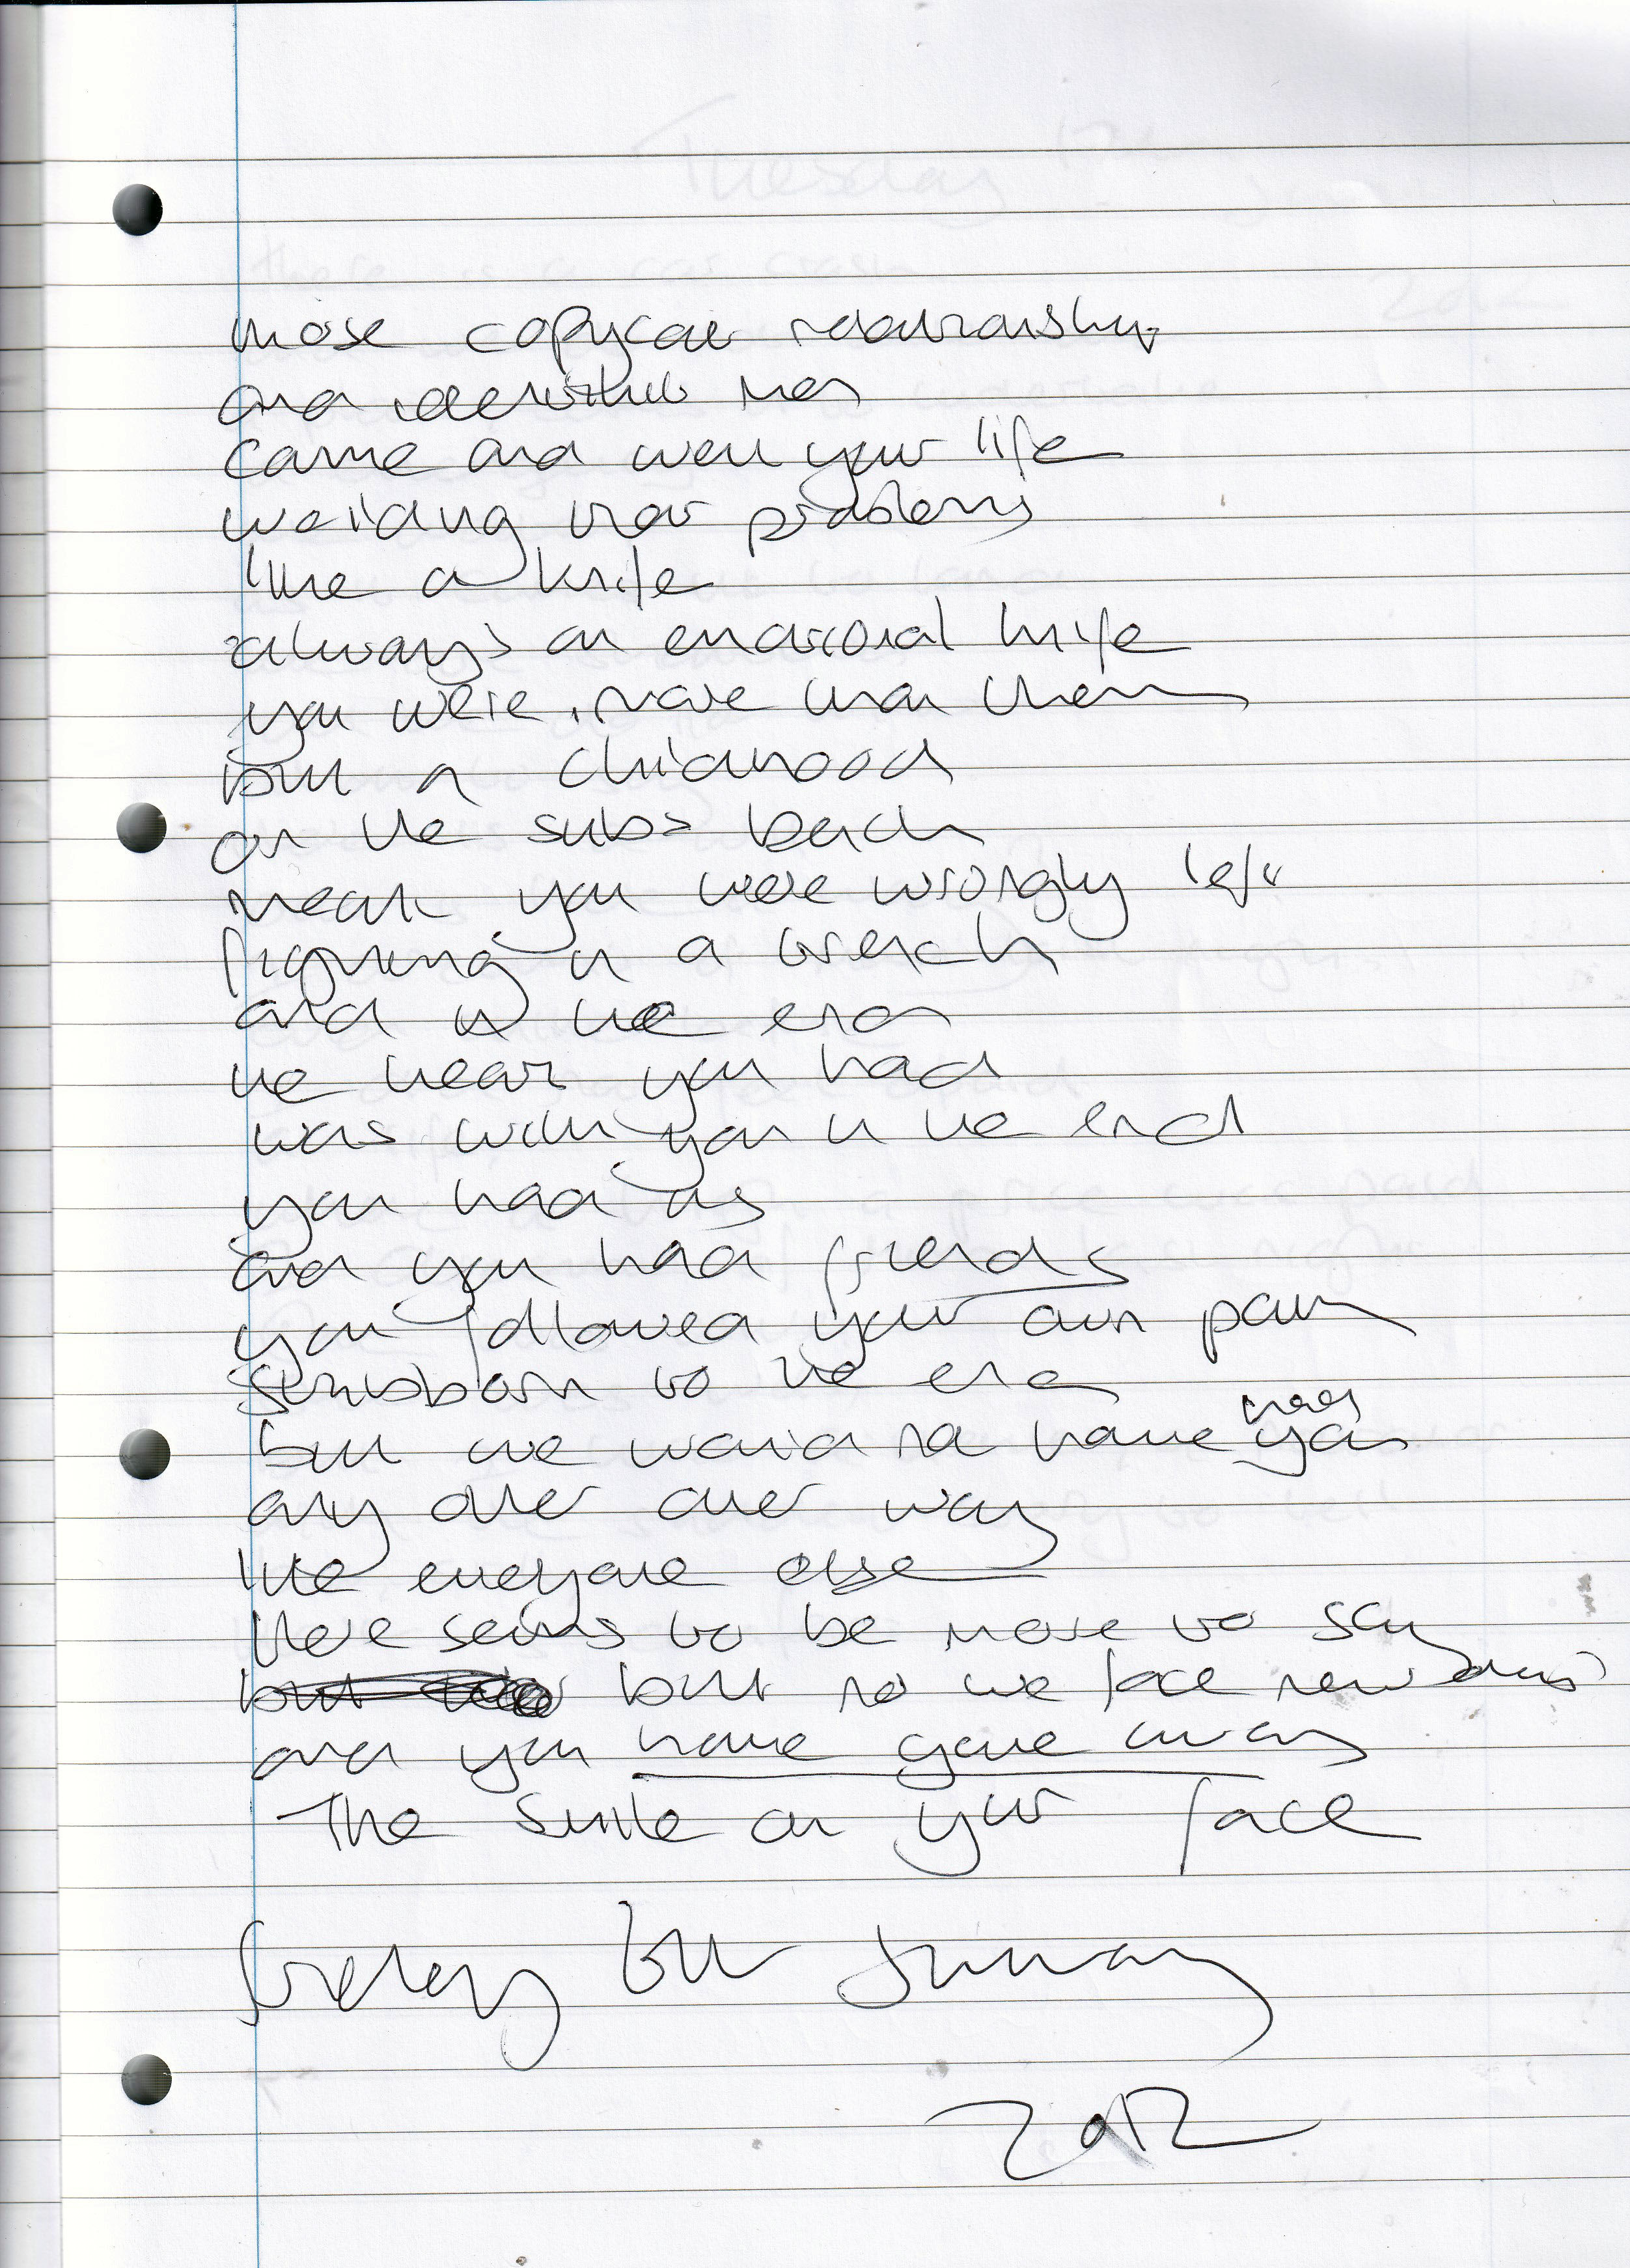 those copycat relationships
and
came and went your life
like a knife
always an emotional knife
you were more than them
but a childhood
on the subs bench
meant you were wrongly left
fighting in a trench
and in the end
the heart you had
was with you in the end
you had us
and you had friends
you followed your own path
stubborn to the end
but we would not have had you
any other way
like everyone else
there seems to be more to say
but but no we face new days
and you have gone away
The smile on your face
Friday 6th January
2012